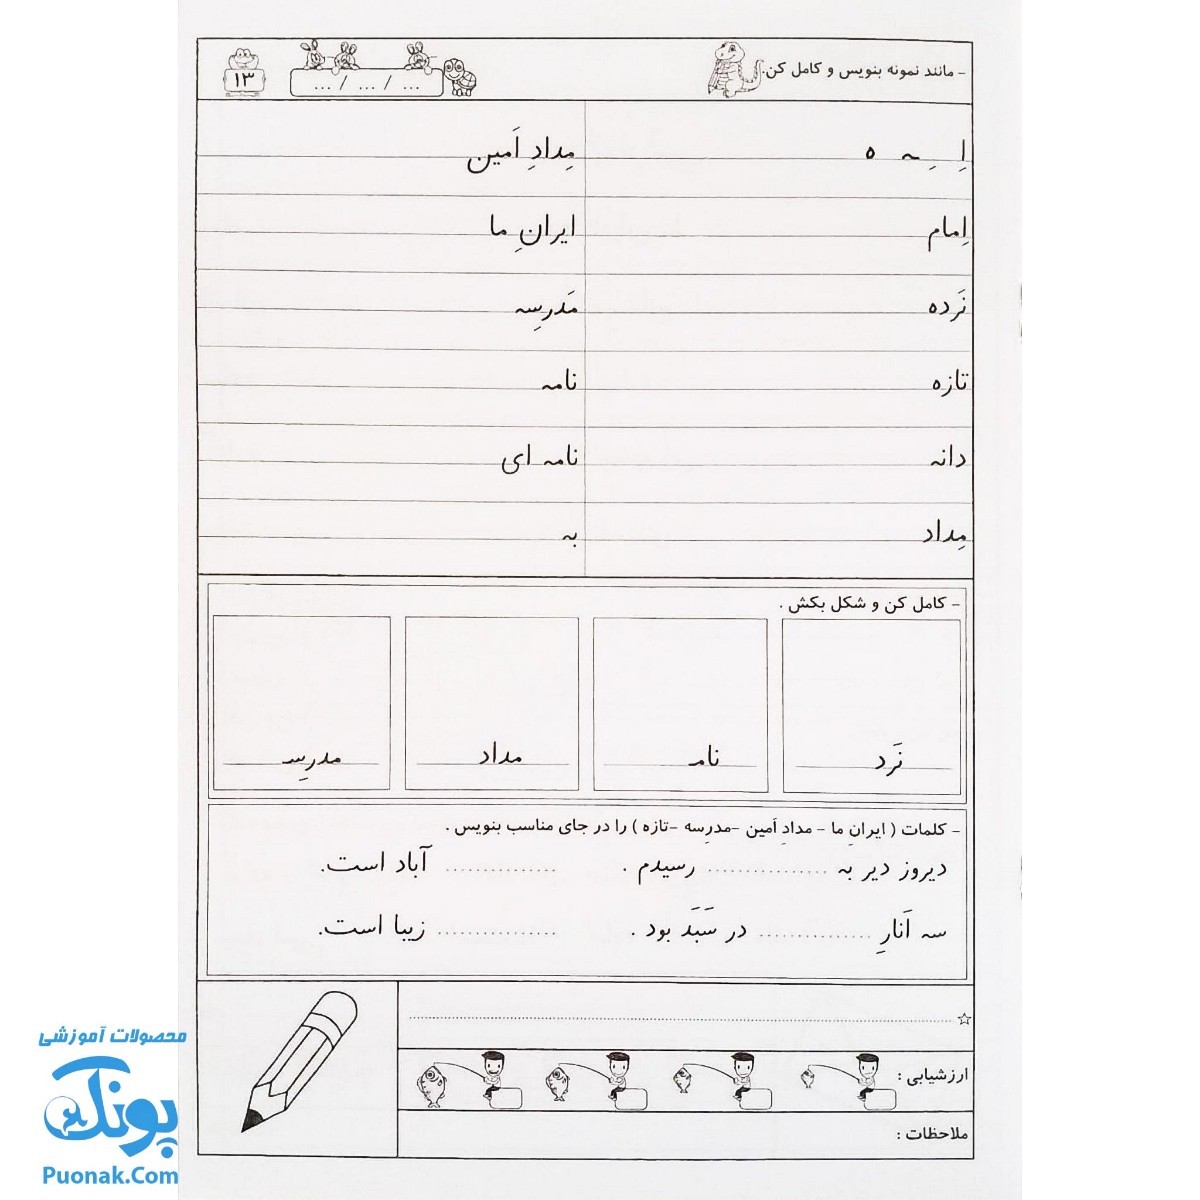 - مانند نمونه بنویس و کامل کن.
... / ... / ...
۱۳
اِ ـِ ـه ه
مِدادِ اَمین
اِمام
ایرانِ ما
نَرده
مَدرِسه
تازه
نامه
دانه
نامه ای
مِداد
به
- کامل کن و شکل بکش .
نَرد
نامـ
مداد
مدرِسـ
- کلمات ( ایرانِ ما - مدادِ اَمین -مدرِسه -تازه ) را در جای مناسب بنویس .
دیروز دیر به ................ رسیدم . ............... آباد است.
سه اَنارِ ............... در سَبَد بود . ............... زیبا است.
☆
ارزشیابی :
ملاحظات :
محصولات آموزشی
پونک
Puonak.Com